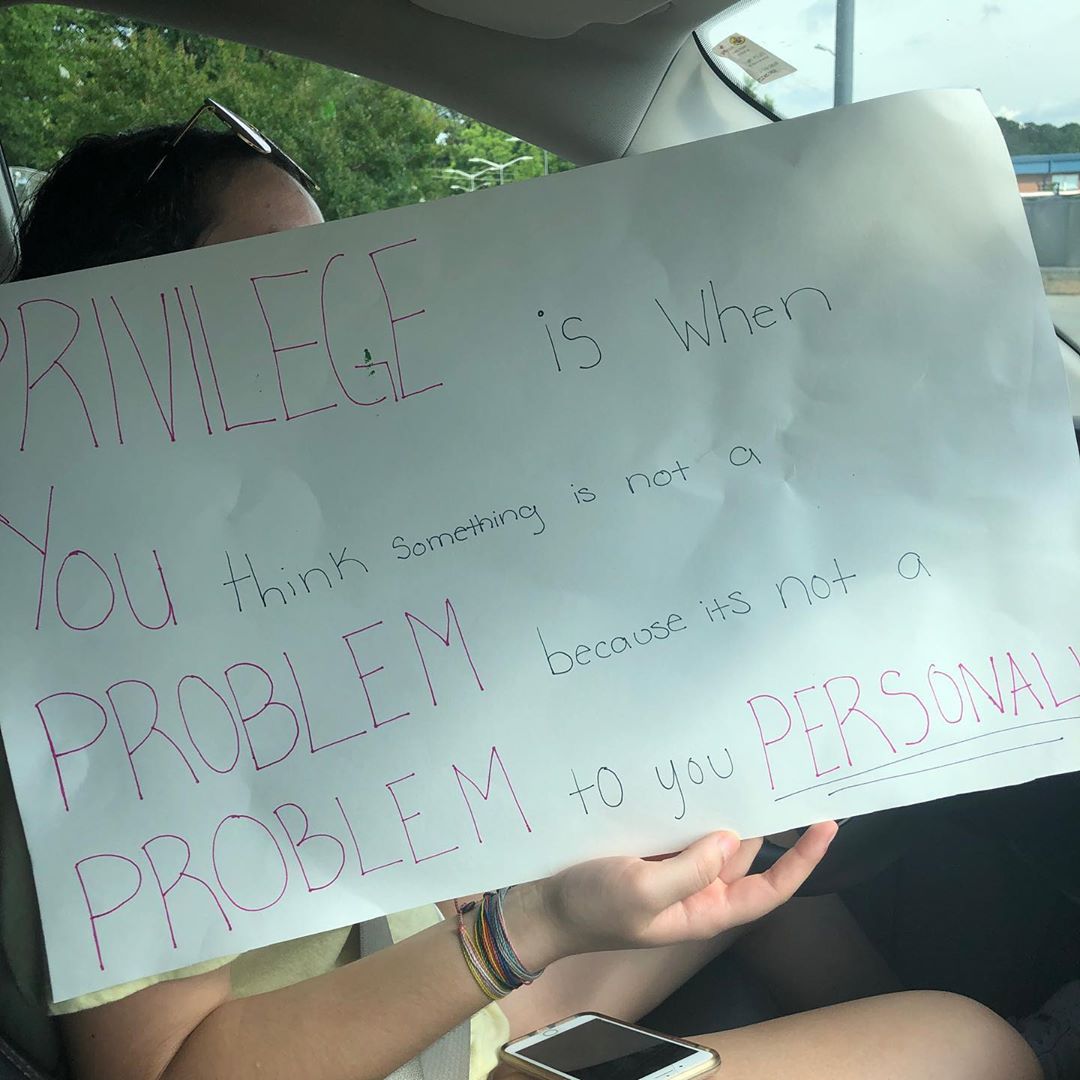 PRIVILEGE is When
You think something is not a
PROBLEM because its not a
PROBLEM to you PERSONALL